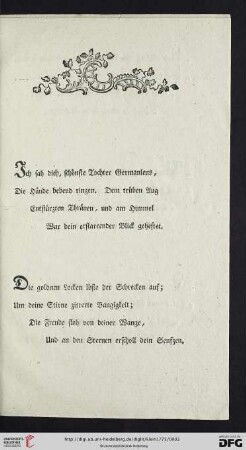 Ich sah dich, schönste Tochter Germaniens,
Die Hände bebend ringen. Dem trüben Aug
Entstürzten Thränen, und am Himmel
War dein erstarrender Blick geheftet.
Die goldnen Locken löste der Schrecken auf;
Um deine Stirne zitterte Bangigkeit;
Die Freude floh von deiner Wange,
Und an den Sternen erscholl dein Seufzen.
UNIVERSITÄTS-BIBLIOTHEK HEIDELBERG
gefördert durch die
DFG